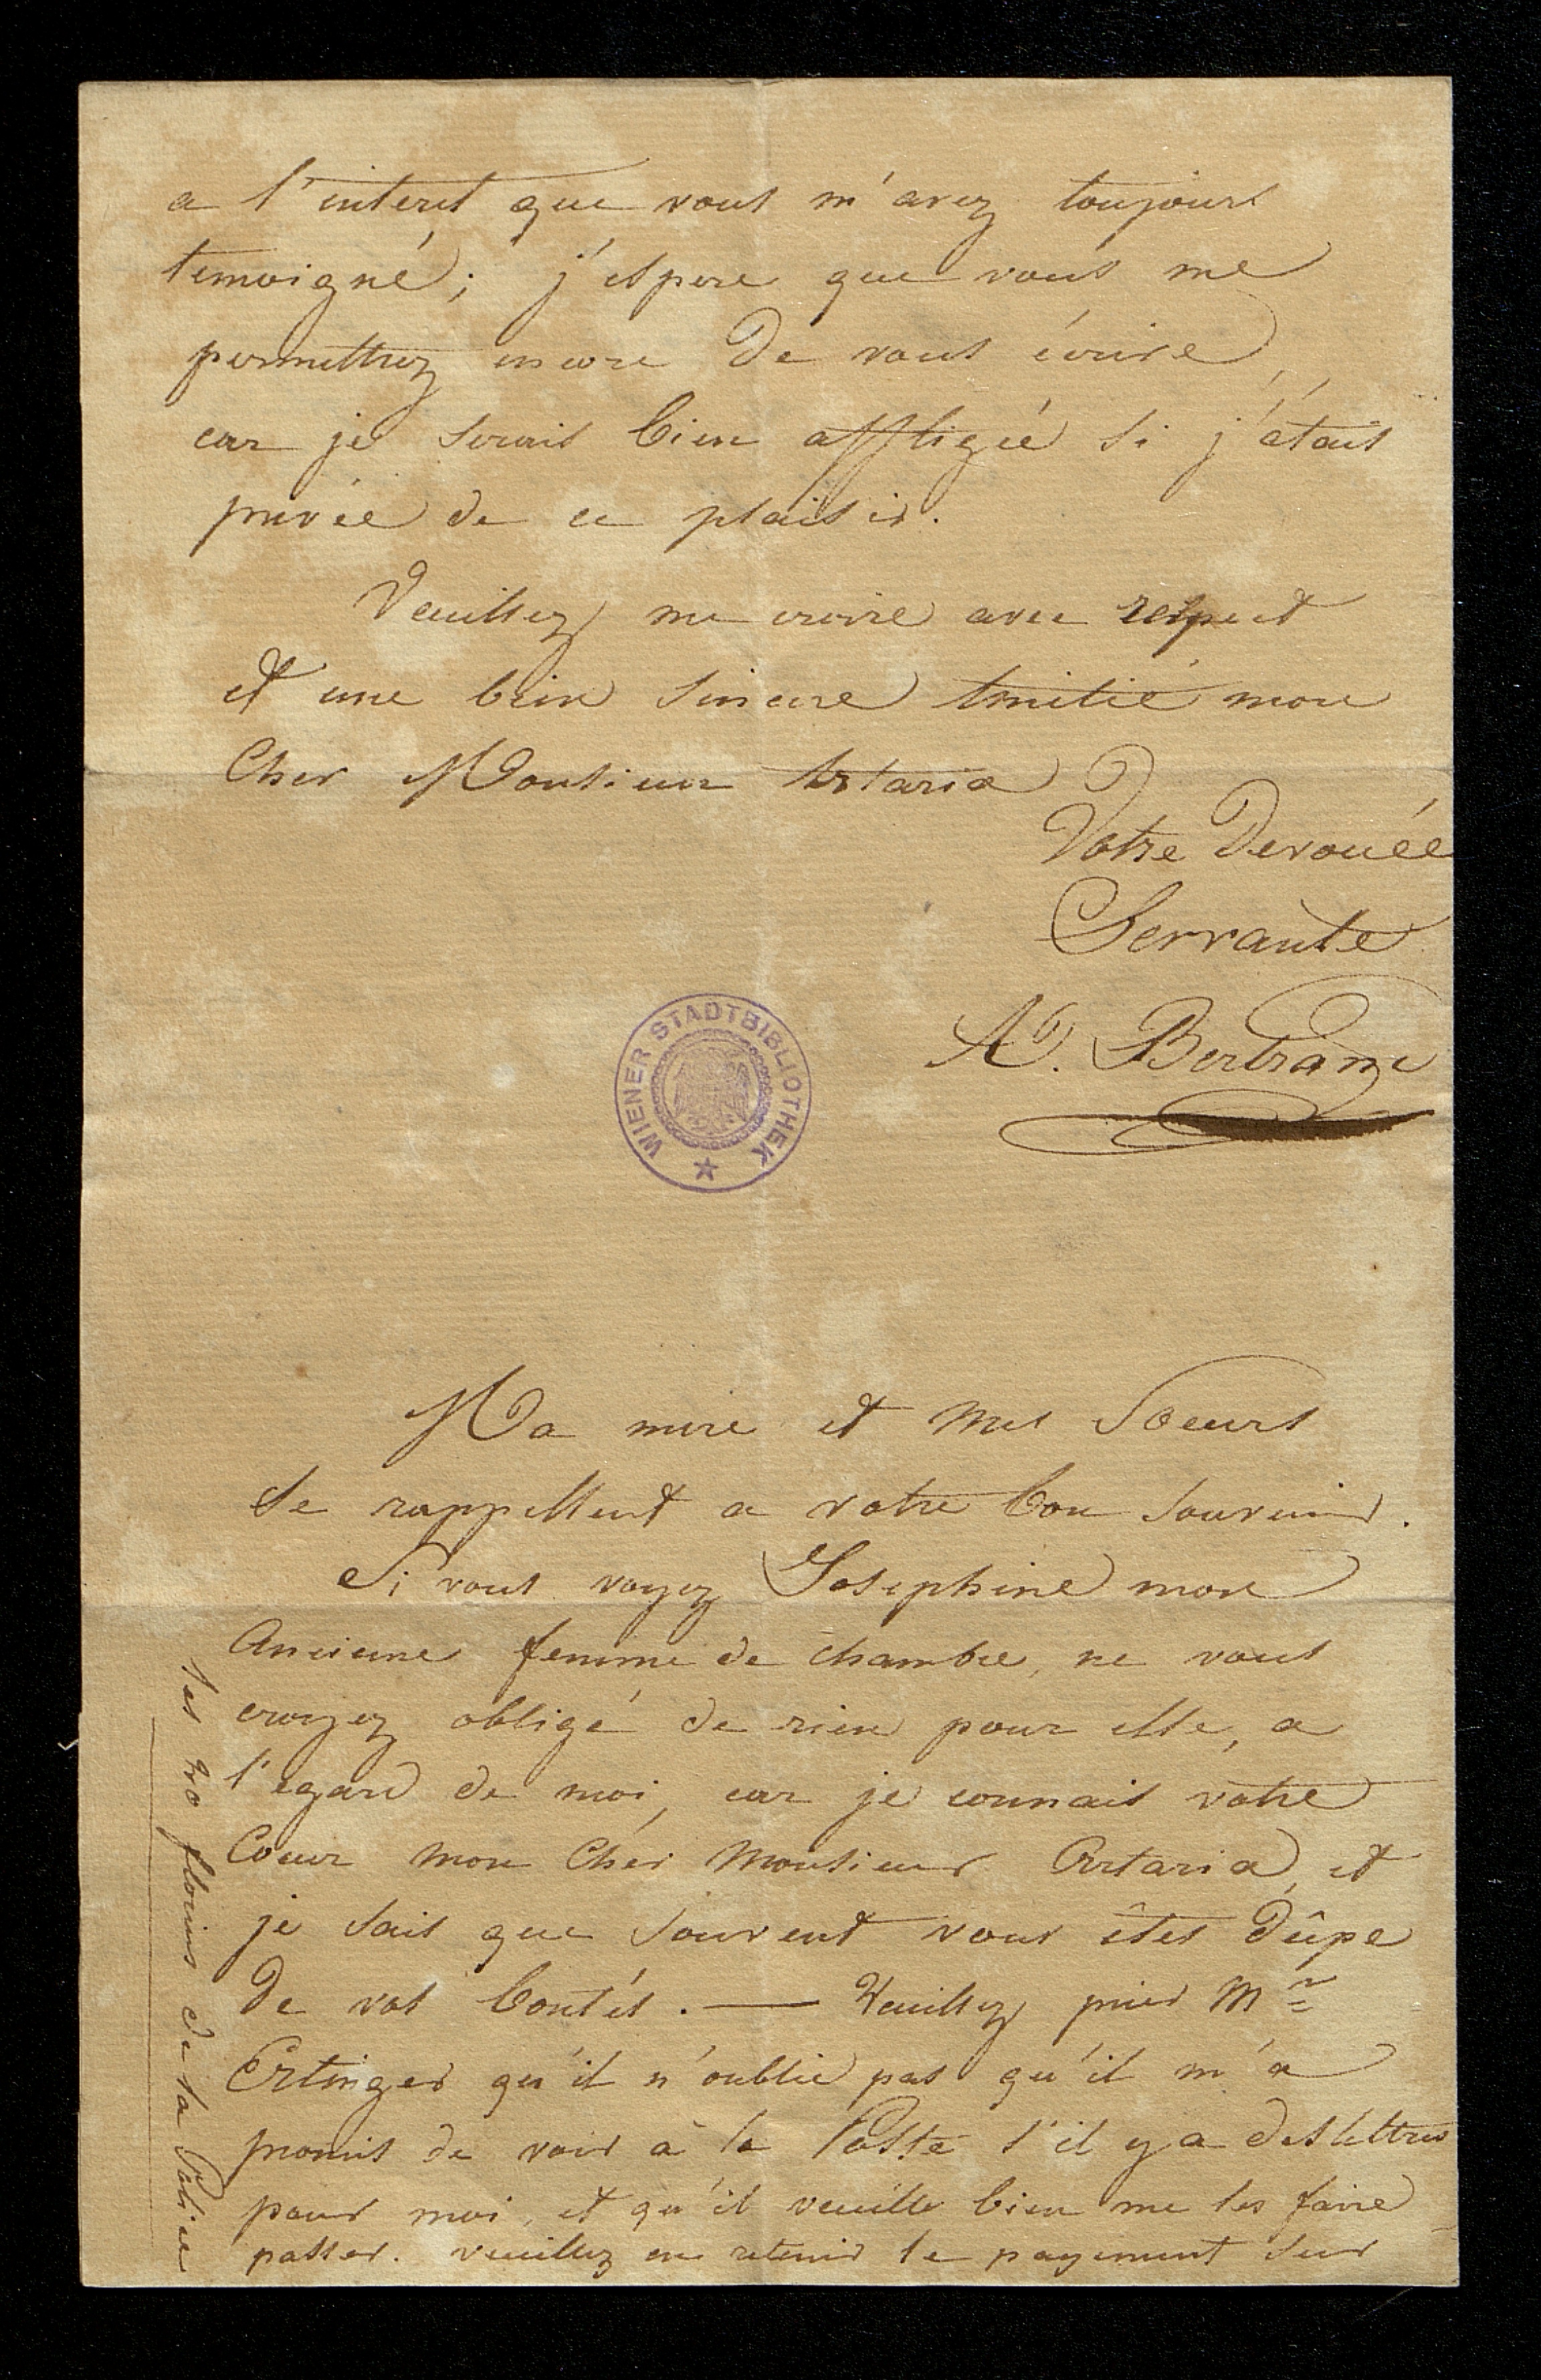 a l'interet que vous m'avez toujours
temoigné; j'espere que vous me
permettrez encore de vous écrire,
car je serais bien affligée si j'étais
privée de ce plaisir.
Veuillez me croire avec respect
et une bien sincere Amitié mon
Cher Monsieur Artaria
Votre Devouée
Servante
Bertram
WIENER STADTBIBLIOTHEK
Ma mere et mes Soeurs
se rappellent a votre bon souvenir.
Si vous voyez Josephine mon
Ancienne femme de chambre, ne vous
croyez obligé de rien pour elle, a
l'egard de moi, car je connais votre
Coeur mon Cher Monsieur Artaria, et
je sais que souvent vous êtes dûpe
de vos bontés. — Veuillez prier Mr
Ertinger qu'il n'oublie pas qu'il m'a
promis de voir à la Poste s'il y a des lettres
pour moi, et qu'il veuille bien me les faire
passer. veuillez en retenir le payement sur
les 20 florins de la Police